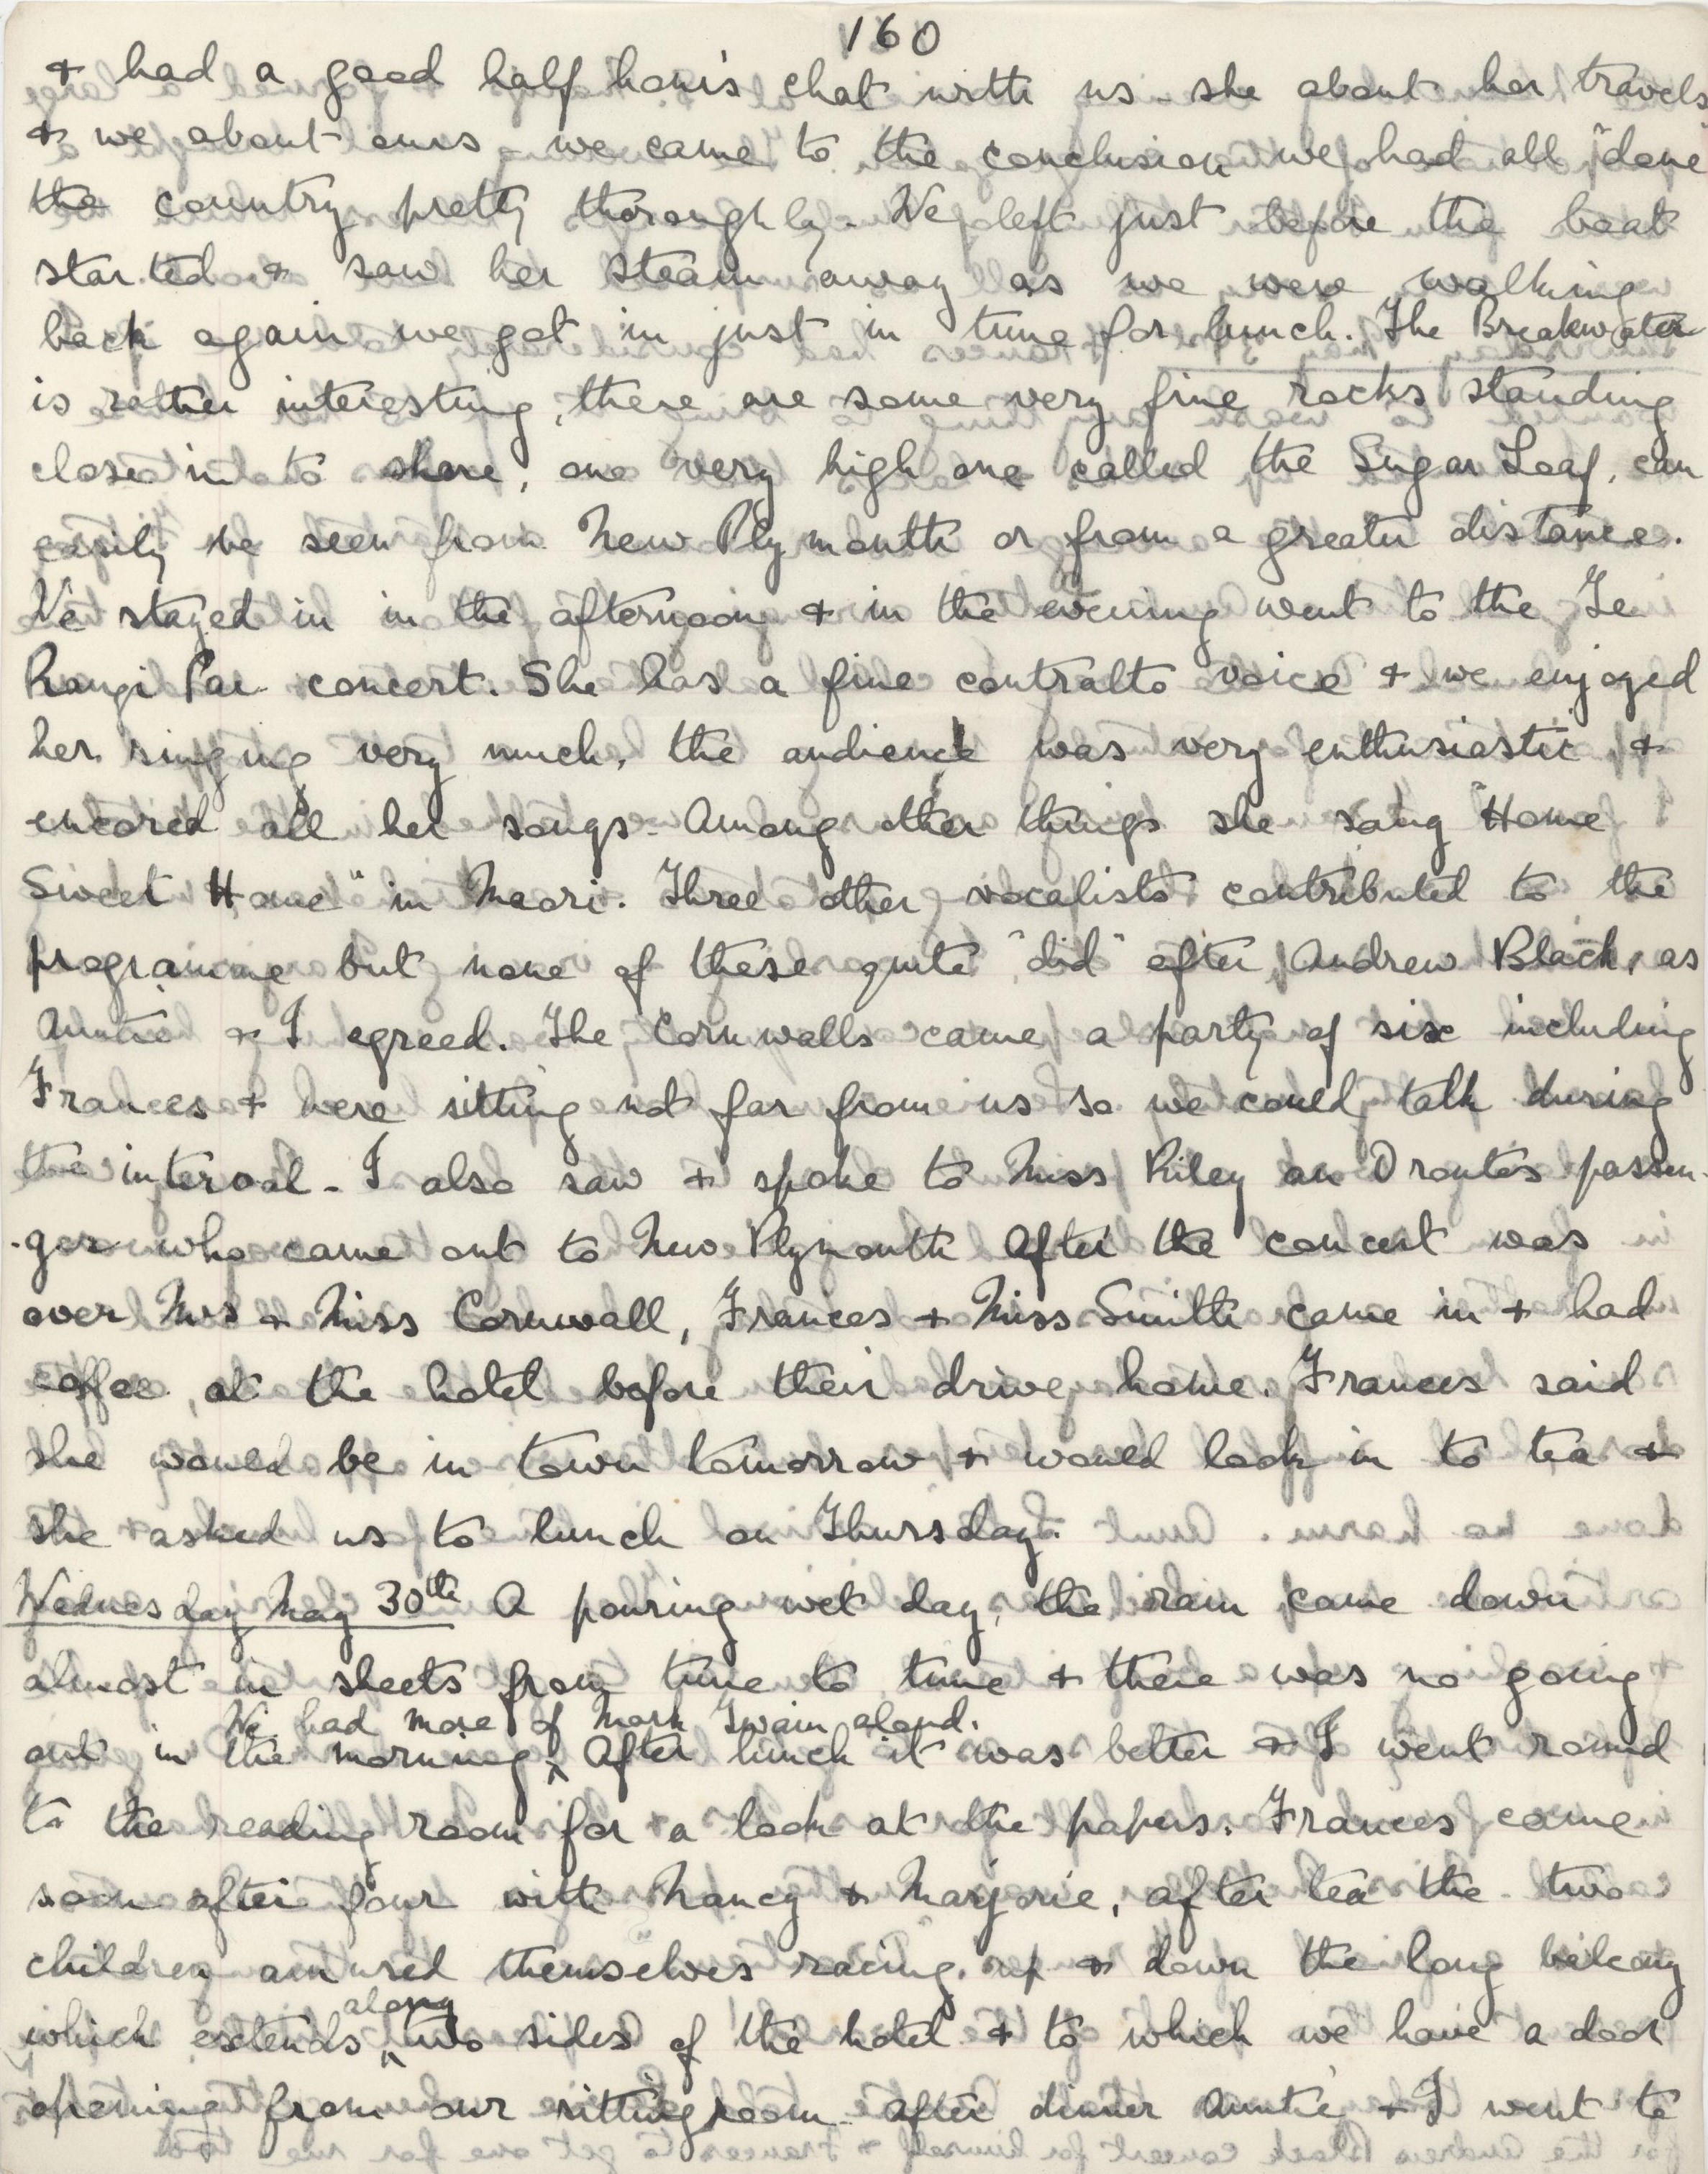 160
& had a good half hour's chat with us - she about her travels
& we about ours - we came to the conclusion we had all "done"
the country pretty thoroughly. We left just before the boat
started & saw her steam away as we were walking
back again we got in just in time for lunch. The Breakwater
is rather interesting, there are some very fine rocks standing
close in to shore, one very high one called the Sugar Loaf, can
easily be seen from New Plymouth or from a greater distance.
We stayed in in the afternoon & in the evening went to the Te
Rangi Pai concert. She has a fine contralto voice & we enjoyed
her singing very much, the audience was very enthusiastic &
encored all her songs - Among other things she sang "Home
Sweet Home" in Maori. Three other vocalists contributed to the
programme but none of these quite "did" after Andrew Black, as
Auntie & I agreed. The Cornwalls came a party of six including
Frances & were sitting not far from us so we could talk during
the interval - I also saw & spoke to Miss Riley an Orontes passen-
-ger who came out to New Plymouth After the concert was
over Mrs & Miss Cornwall, Frances & Miss Smith came in & had
coffee, at the hotel before their drive home. Frances said
she would be in town tomorrow & would look in to tea &
she asked us to lunch on Thursday.
Wednesday May 30th A pouring wet day, the rain came down
almost in sheets from time to time & there was no going
We had more of Mark Twain aloud.
out in the morning. ^ After lunch it was better & I went round
to the reading room for a look at the papers. Frances came
soon after four with Nancy & Marjorie, after tea the two
children amused themselves racing up & down the long balcony
along
which extends ^ two sides of the hotel & to which we have a door
opening from our sitting room - after dinner Auntie & I went to